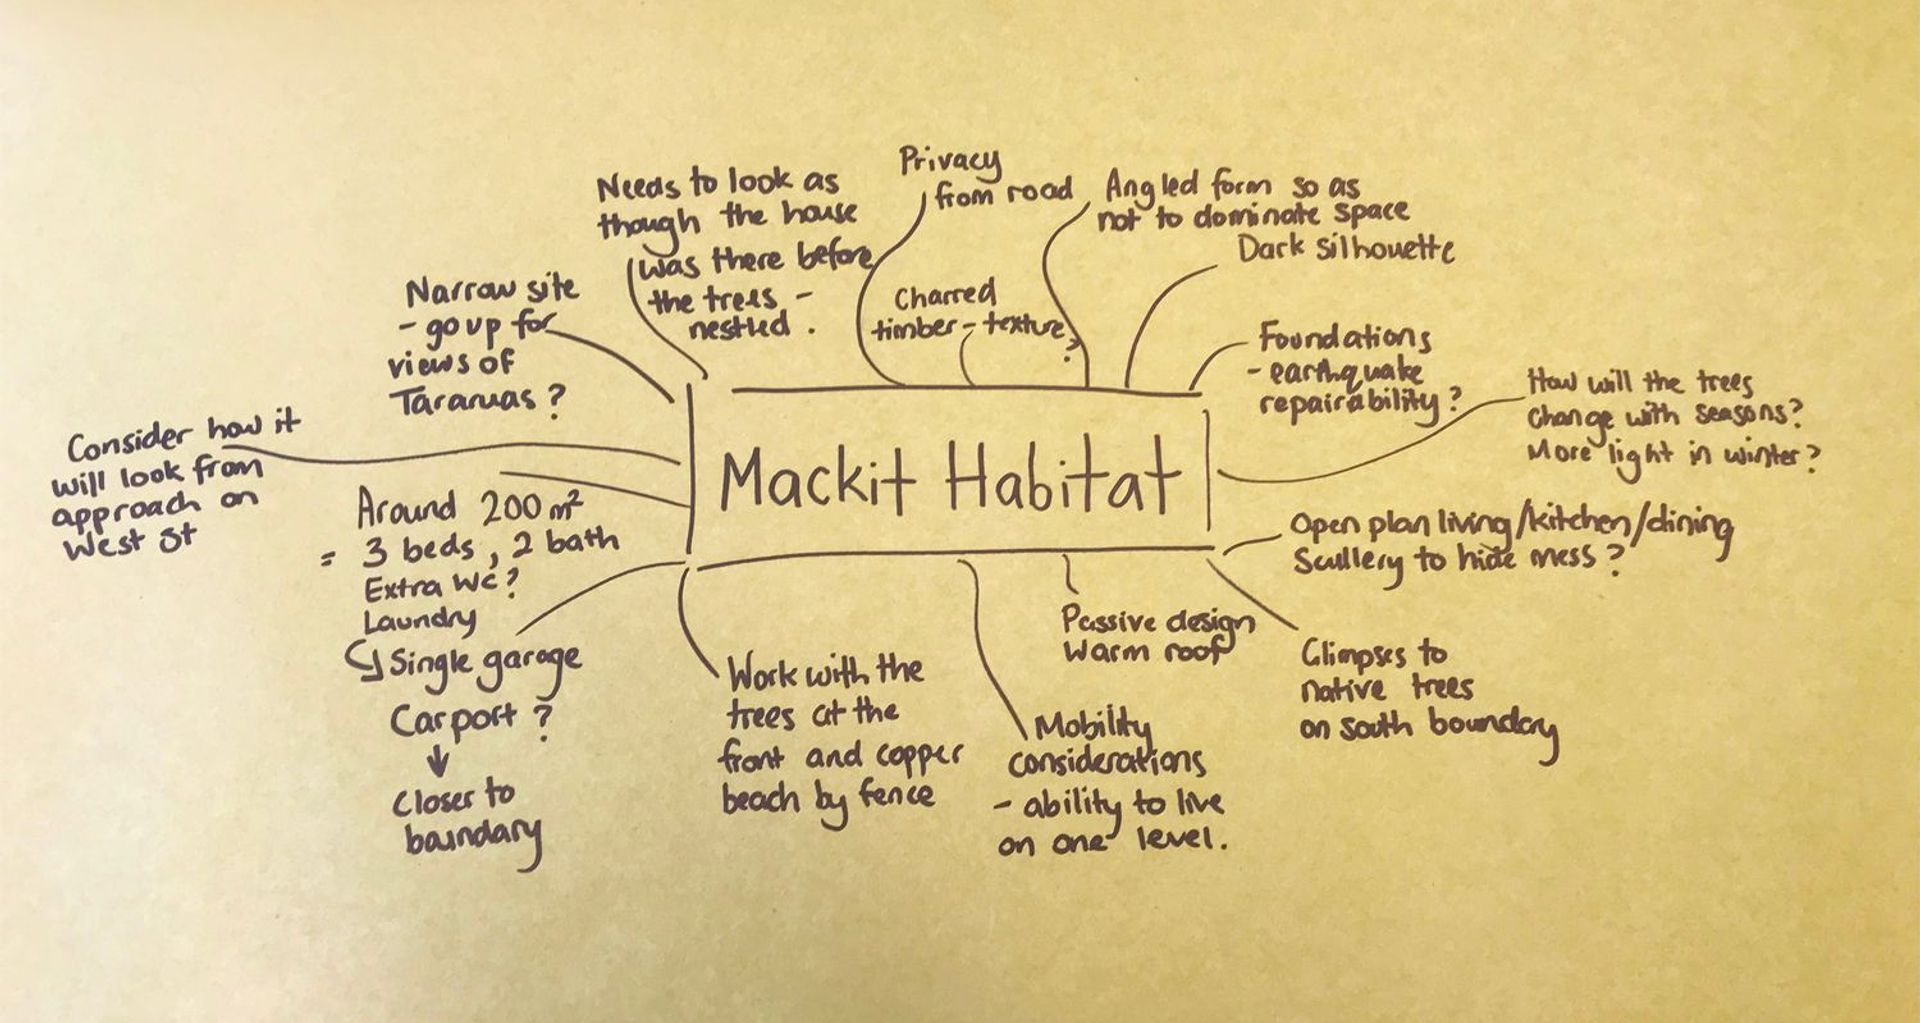 Privacy
from road
Needs to look as
though the house
was there before
the trees -
nestled.
Angled form so as
not to dominate space
Dark silhouette
Narrow site
- go up for
views of
Tararuas?
Charred
timber - texture?
Foundations
- earthquake
repairability?
How will the trees
change with seasons?
More light in winter?
Consider how it
will look from
approach on
West St
Mackit Habitat
Around 200m²
= 3 beds, 2 bath
Extra WC?
Laundry
Single garage
Carport?
Closer to
boundary
Open plan living/kitchen/dining
Scullery to hide mess?
Passive design
Warm roof
Glimpses to
native trees
on south boundary
Work with the
trees at the
front and copper
beach by fence
Mobility
considerations
- ability to live
on one level.